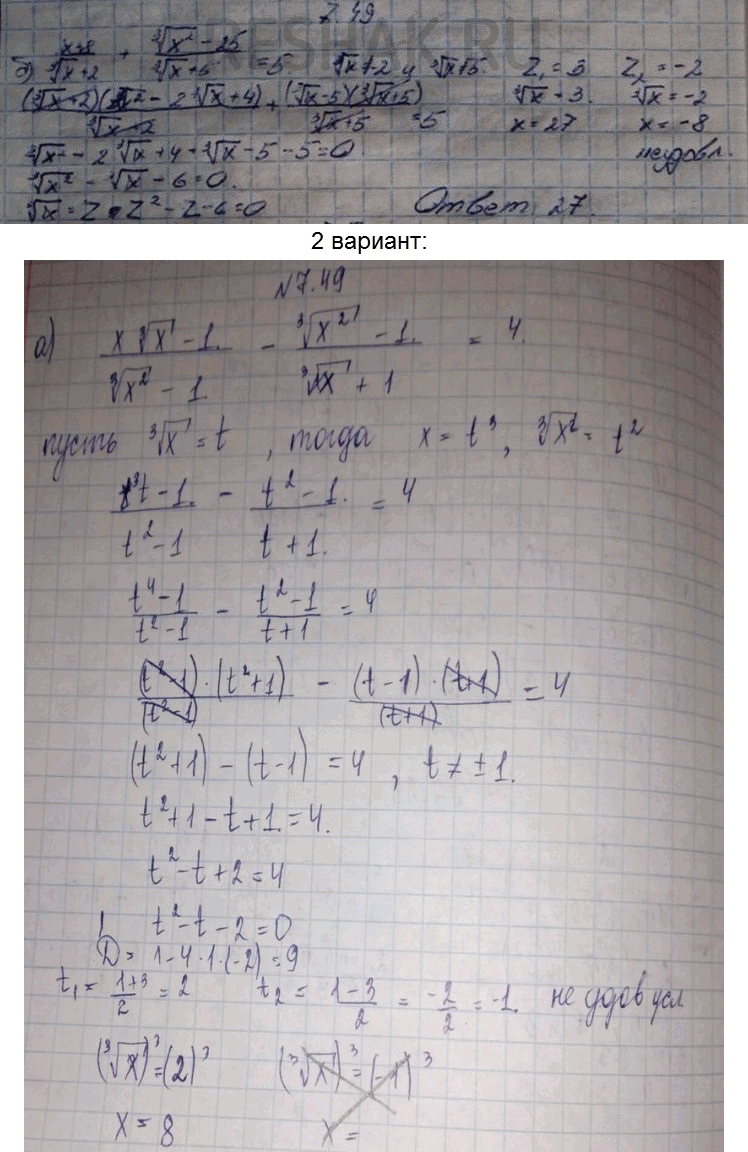 7.49
RESHAK.RU
б) (x+8)/(∛x+2) + (∛x² - 25)/(∛x+5) = 5. ∛x+2 и ∛x+5. Z₁ = 3 Z₂ = -2
(∛x+2)(∛x² - 2∛x+4)/(∛x+2) + (∛x-5)(∛x+5)/(∛x+5) = 5 ∛x = 3. ∛x = -2
x = 27 x = -8
∛x² - 2∛x + 4 + ∛x - 5 - 5 = 0 неудовл.
∛x² - ∛x - 6 = 0.
∛x = Z Z² - Z - 6 = 0 Ответ: 27.
2 вариант:
№7.49
а) (x∛x - 1)/(∛x² - 1) - (∛x² - 1)/(∛x + 1) = 4.
пусть ∛x = t, тогда x = t³, ∛x² = t²
(t³t - 1)/(t² - 1) - (t² - 1)/(t + 1) = 4
(t⁴ - 1)/(t² - 1) - (t² - 1)/(t + 1) = 4
(t² - 1)·(t² + 1)/(t² - 1) - (t - 1)·(t + 1)/(t + 1) = 4
(t² + 1) - (t - 1) = 4, t ≠ ± 1.
t² + 1 - t + 1 = 4.
t² - t + 2 = 4
t² - t - 2 = 0
D = 1 - 4·1·(-2) = 9
t₁ = (1+3)/2 = 2 t₂ = (1-3)/2 = -2/2 = -1 не удов усл
(∛x)³ = (2)³ (∛x)³ = (-1)³
x = 8 x =